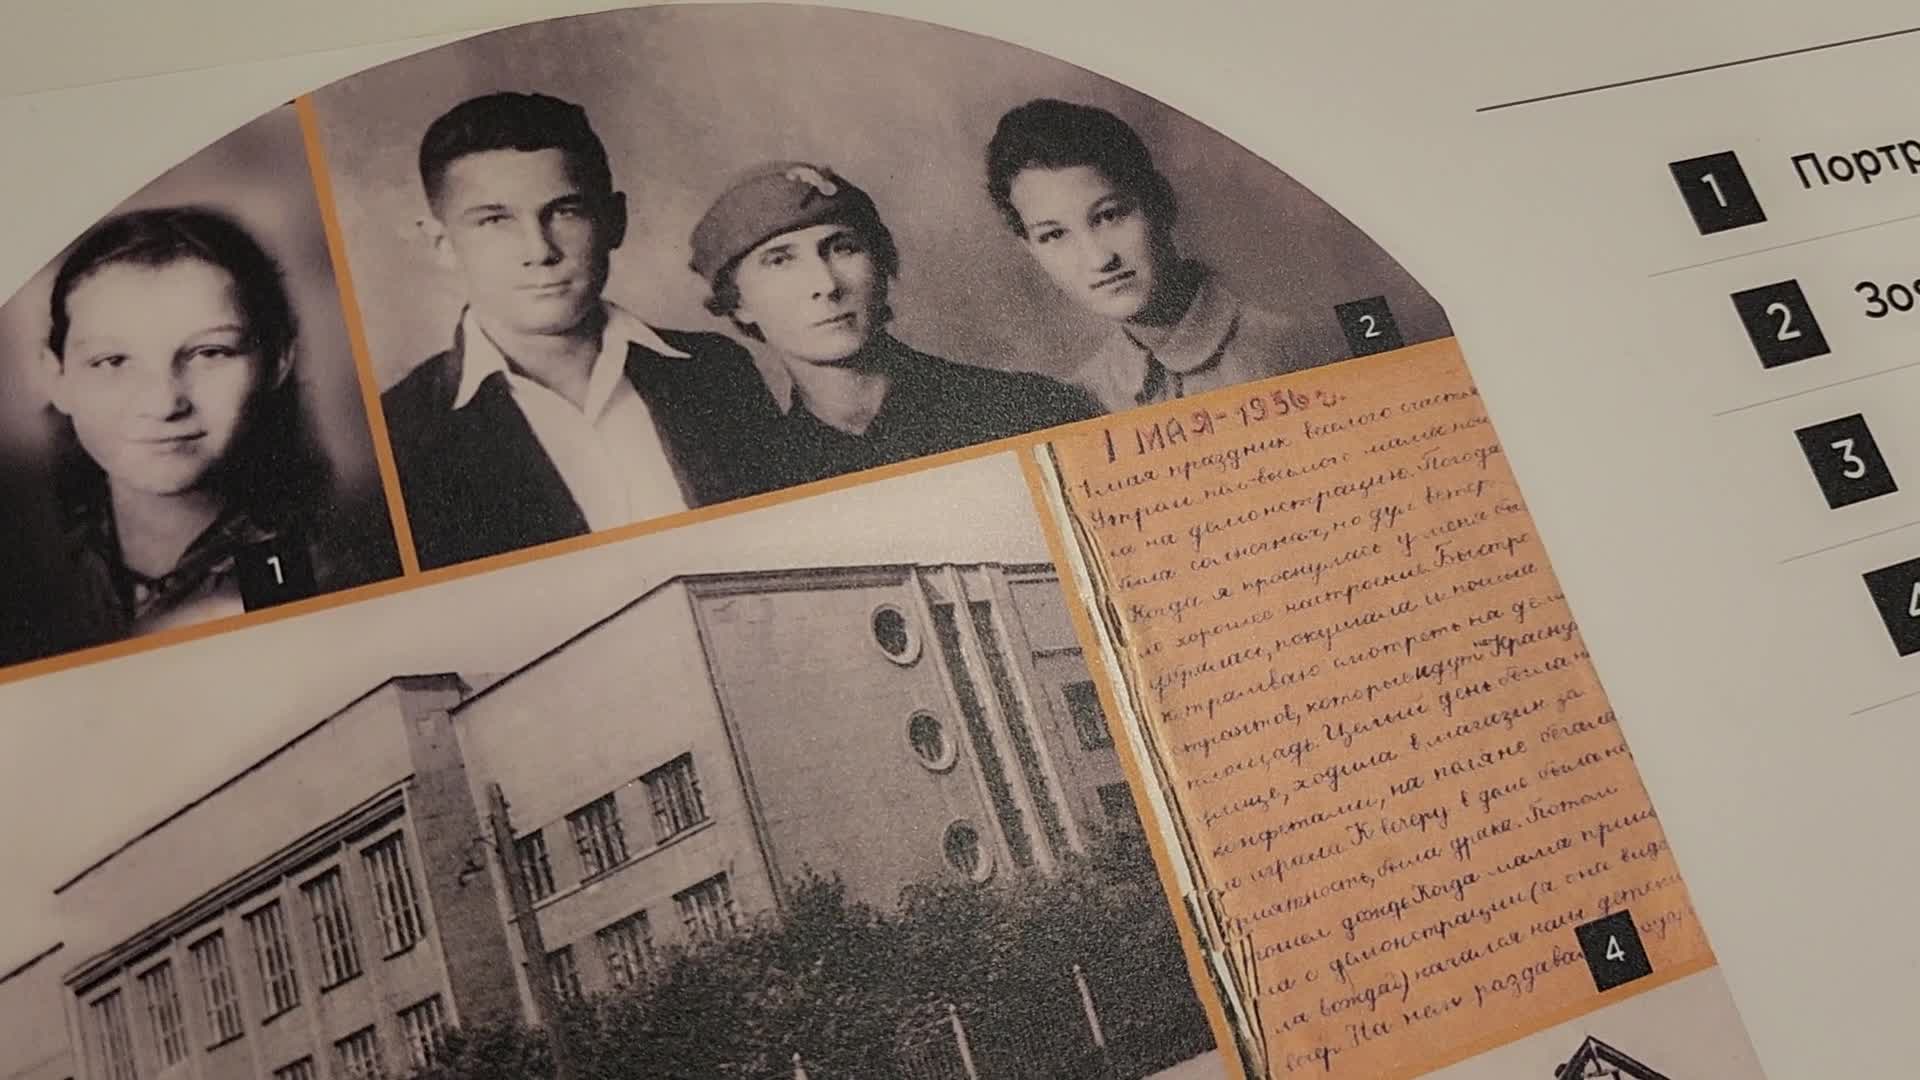 1 Портр
2 Зоя
3
4
1
2
4
1 МАЯ - 1936 г.
1 мая праздник веселого счастья
Утром пол-восьмого мама пош
ла на демонстрацию. Погода
была солнечная, но дул ветер.
Когда я проснулась у меня бы
ло хорошее настроение. Быстро
убралась, покушала и пошла
к трамваю смотреть на демон
странтов, которые идут на Красную
площадь. Целый день была на
улице, ходила в магазин за
конфетами, на поляне бегала
и играла. К вечеру в доме была не
приятность, была драка. Потом
пошел дождь. Когда мама пришла
с демонстрации (а она виде
ла вождей) начался наш детский
вечер. На нем раздавали